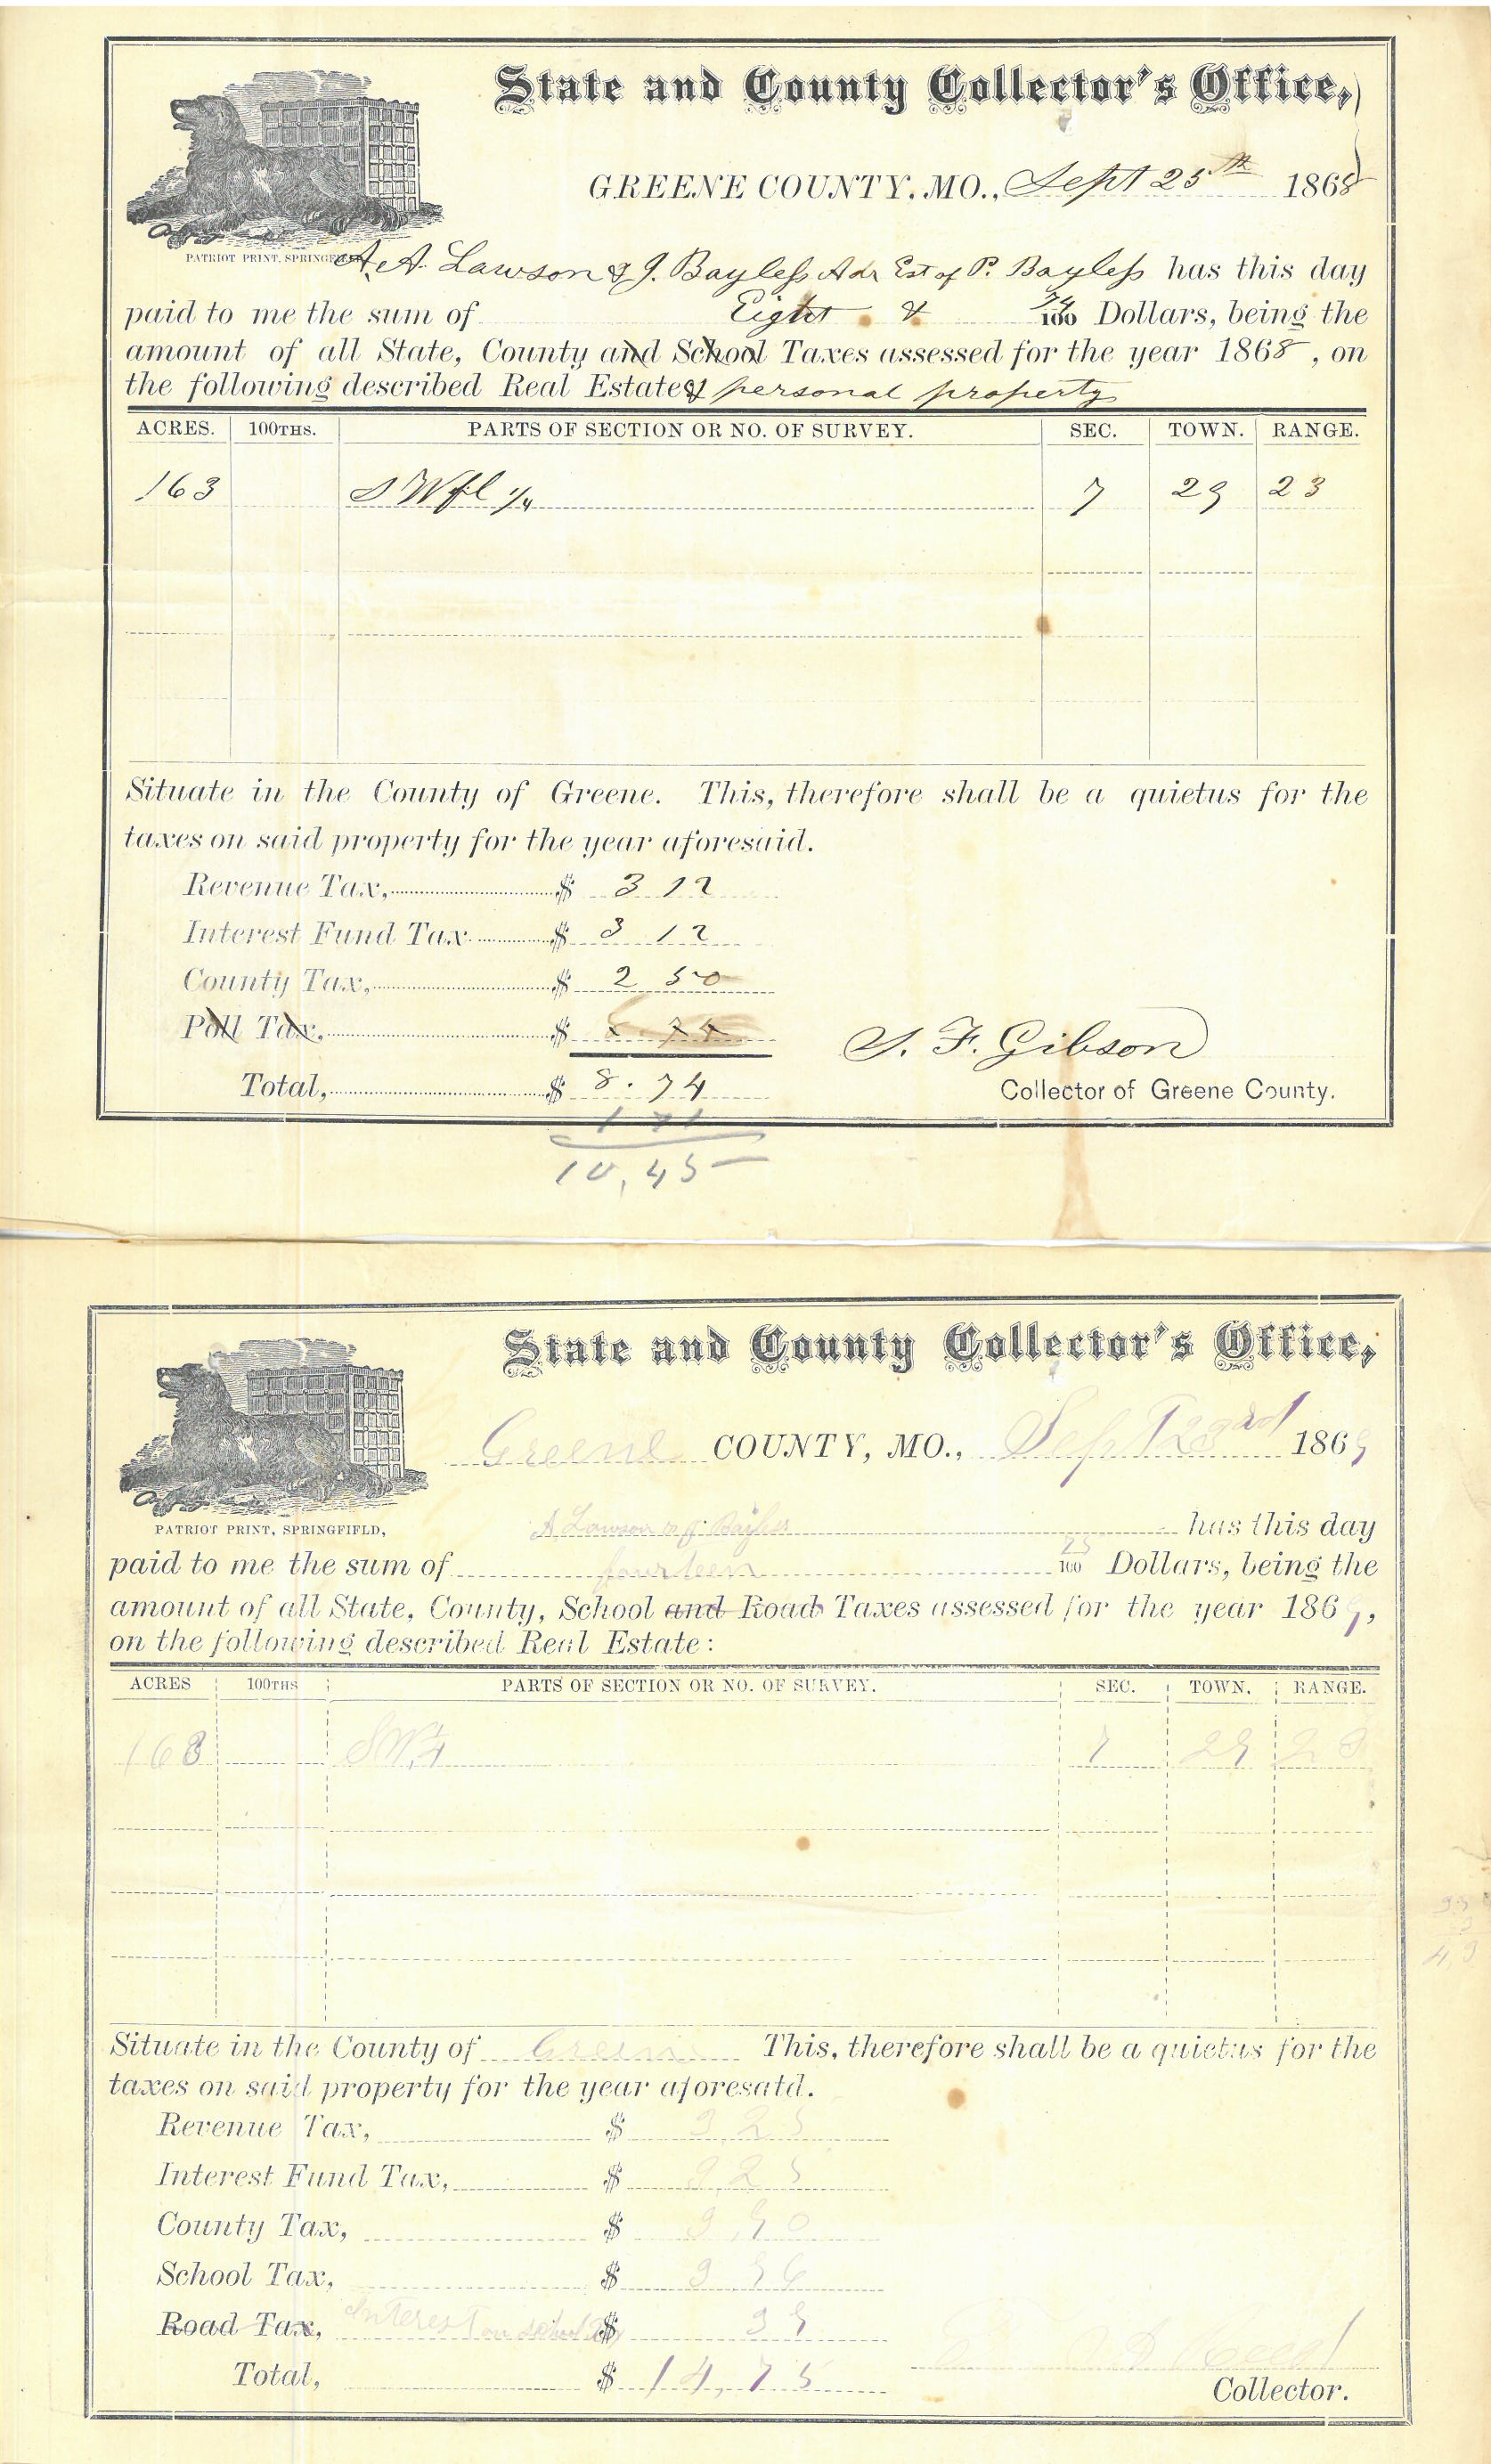 State and County Collector's Office,
GREENE COUNTY, MO., Sept 25th 1868
PATRIOT PRINT, SPRINGFIELD
A. A. Lawson & J. Bayless Adr Est of P. Bayless has this day
paid to me the sum of Eight & 74/100 Dollars, being the
amount of all State, County and School Taxes assessed for the year 1868, on
the following described Real Estate & personal property
ACRES. 100THS. PARTS OF SECTION OR NO. OF SURVEY. SEC. TOWN. RANGE.
163 S W fl 1/4 7 29 23
Situate in the County of Greene. This, therefore shall be a quietus for the
taxes on said property for the year aforesaid.
Revenue Tax, $ 3 12
Interest Fund Tax $ 3 12
County Tax, $ 2 50
Poll Tax, $
Total, $ 8.74
S. F. Gibson
Collector of Greene County.
1 71
10,45
State and County Collector's Office,
Greene COUNTY, MO., Sept 23rd 1869
PATRIOT PRINT, SPRINGFIELD,
A Lawson J. Bayless has this day
paid to me the sum of fourteen 75/100 Dollars, being the
amount of all State, County, School and Road Taxes assessed for the year 1869,
on the following described Real Estate:
ACRES 100THS PARTS OF SECTION OR NO. OF SURVEY. SEC. TOWN. RANGE.
163 SW 1/4 7 29 23
Situate in the County of Greene This, therefore shall be a quietus for the
taxes on said property for the year aforesatd.
Revenue Tax, $ 3,25
Interest Fund Tax, $ 3,25
County Tax, $ 3,90
School Tax, $ 3 96
Road Tax, Interest on school Tax $ 39
Total, $ 14,75
Collector.